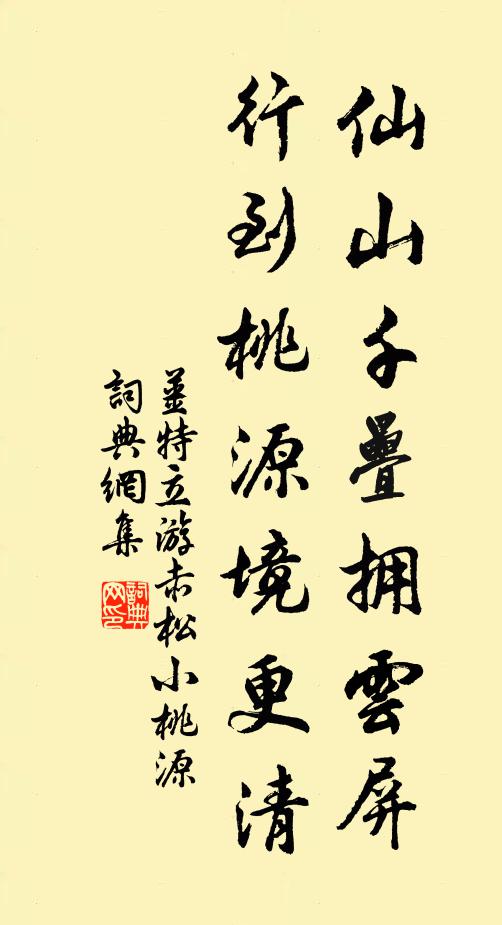 仙山千疊拥雲屏
行到桃源境更清
姜特立游赤松小桃源
詞典網集
詞典网印